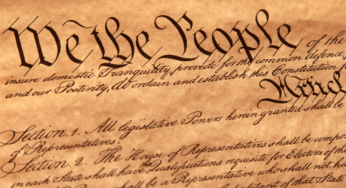 We the People of the
insure domestic Tranquility, provide for the common defence,
and our Posterity, do ordain and establish this Constitution
Articl
Section 1. All legislative Powers herein granted shall be
of Representatives.
Section 2. The House of Representatives shall be comp
in each State shall have Qualifications requisite for Electors of the
shall be a Representative who shall not ha
of that State